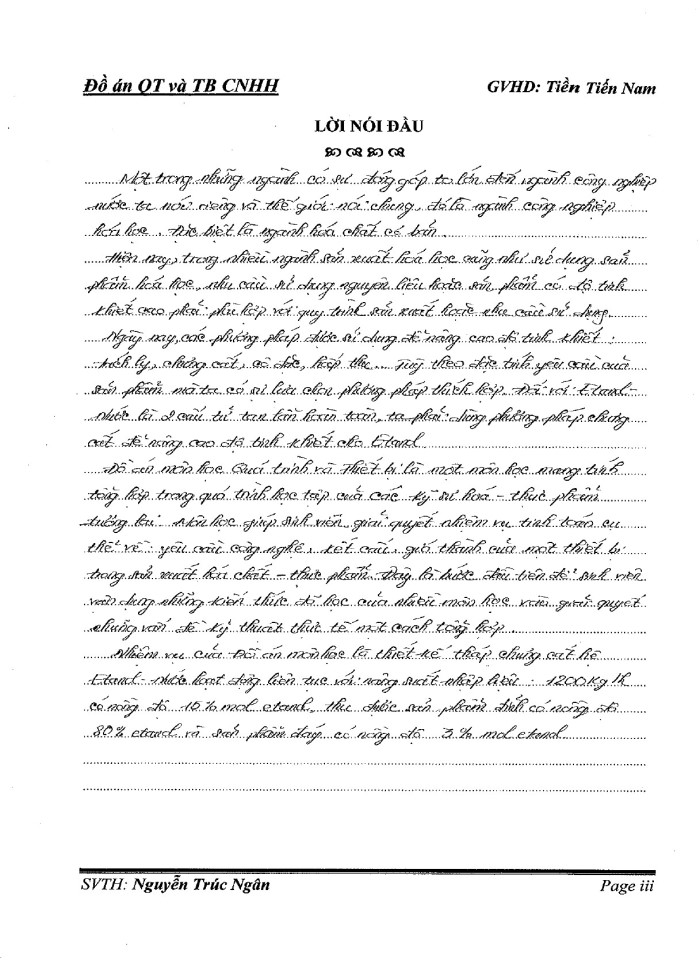 Đồ án QT và TB CNHH GVHD: Tiền Tiến Nam
LỜI NÓI ĐẦU
Một trong những ngành có sự đóng góp to lớn đến ngành công nghiệp
nước ta nói riêng và thế giới nói chung, đó là ngành công nghiệp
hóa học. Đặc biệt là ngành hóa chất cơ bản.
Hiện nay, trong nhiều ngành sản xuất hóa học cũng như sử dụng sản
phẩm hóa học, nhu cầu sử dụng nguyên liệu hoặc sản phẩm có độ tinh
khiết cao phải phù hợp với quy trình sản xuất hoặc nhu cầu sử dụng.
Ngày nay, các phương pháp được sử dụng để nâng cao độ tinh khiết:
trích ly, chưng cất, cô đặc, hấp thu... Tùy theo đặc tính yêu cầu của
sản phẩm mà ta có sự lựa chọn phương pháp thích hợp. Đối với Etanol-
Nước là 2 cấu tử tan lẫn hoàn toàn, ta phải dùng phương pháp chưng
cất để nâng cao độ tinh khiết cho Etanol.
Đồ án môn học Quá trình và Thiết bị là một môn học mang tính
tổng hợp trong quá trình học tập của các kỹ sư hoá - thực phẩm
tương lai. Môn học giúp sinh viên giải quyết nhiệm vụ tính toán cụ
thể về: yêu cầu công nghệ, kết cấu, giá thành của một thiết bị
trong sản xuất hóa chất - thực phẩm. Đây là bước đầu tiên để sinh viên
vận dụng những kiến thức đã học của nhiều môn học vào giải quyết
những vấn đề kỹ thuật thực tế một cách tổng hợp.
Nhiệm vụ của Đồ án môn học là thiết kế tháp chưng cất hệ
Etanol - Nước hoạt động liên tục với năng suất nhập liệu: 1200 Kg/h
có nồng độ 15% mol etanol, thu được sản phẩm đỉnh có nồng độ
80% etanol và sản phẩm đáy có nồng độ 3% mol etanol.
SVTH: Nguyễn Trúc Ngân Page iii